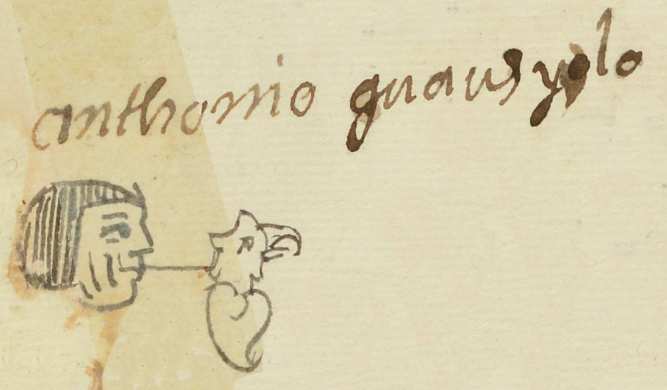 anthonio quauhyolo